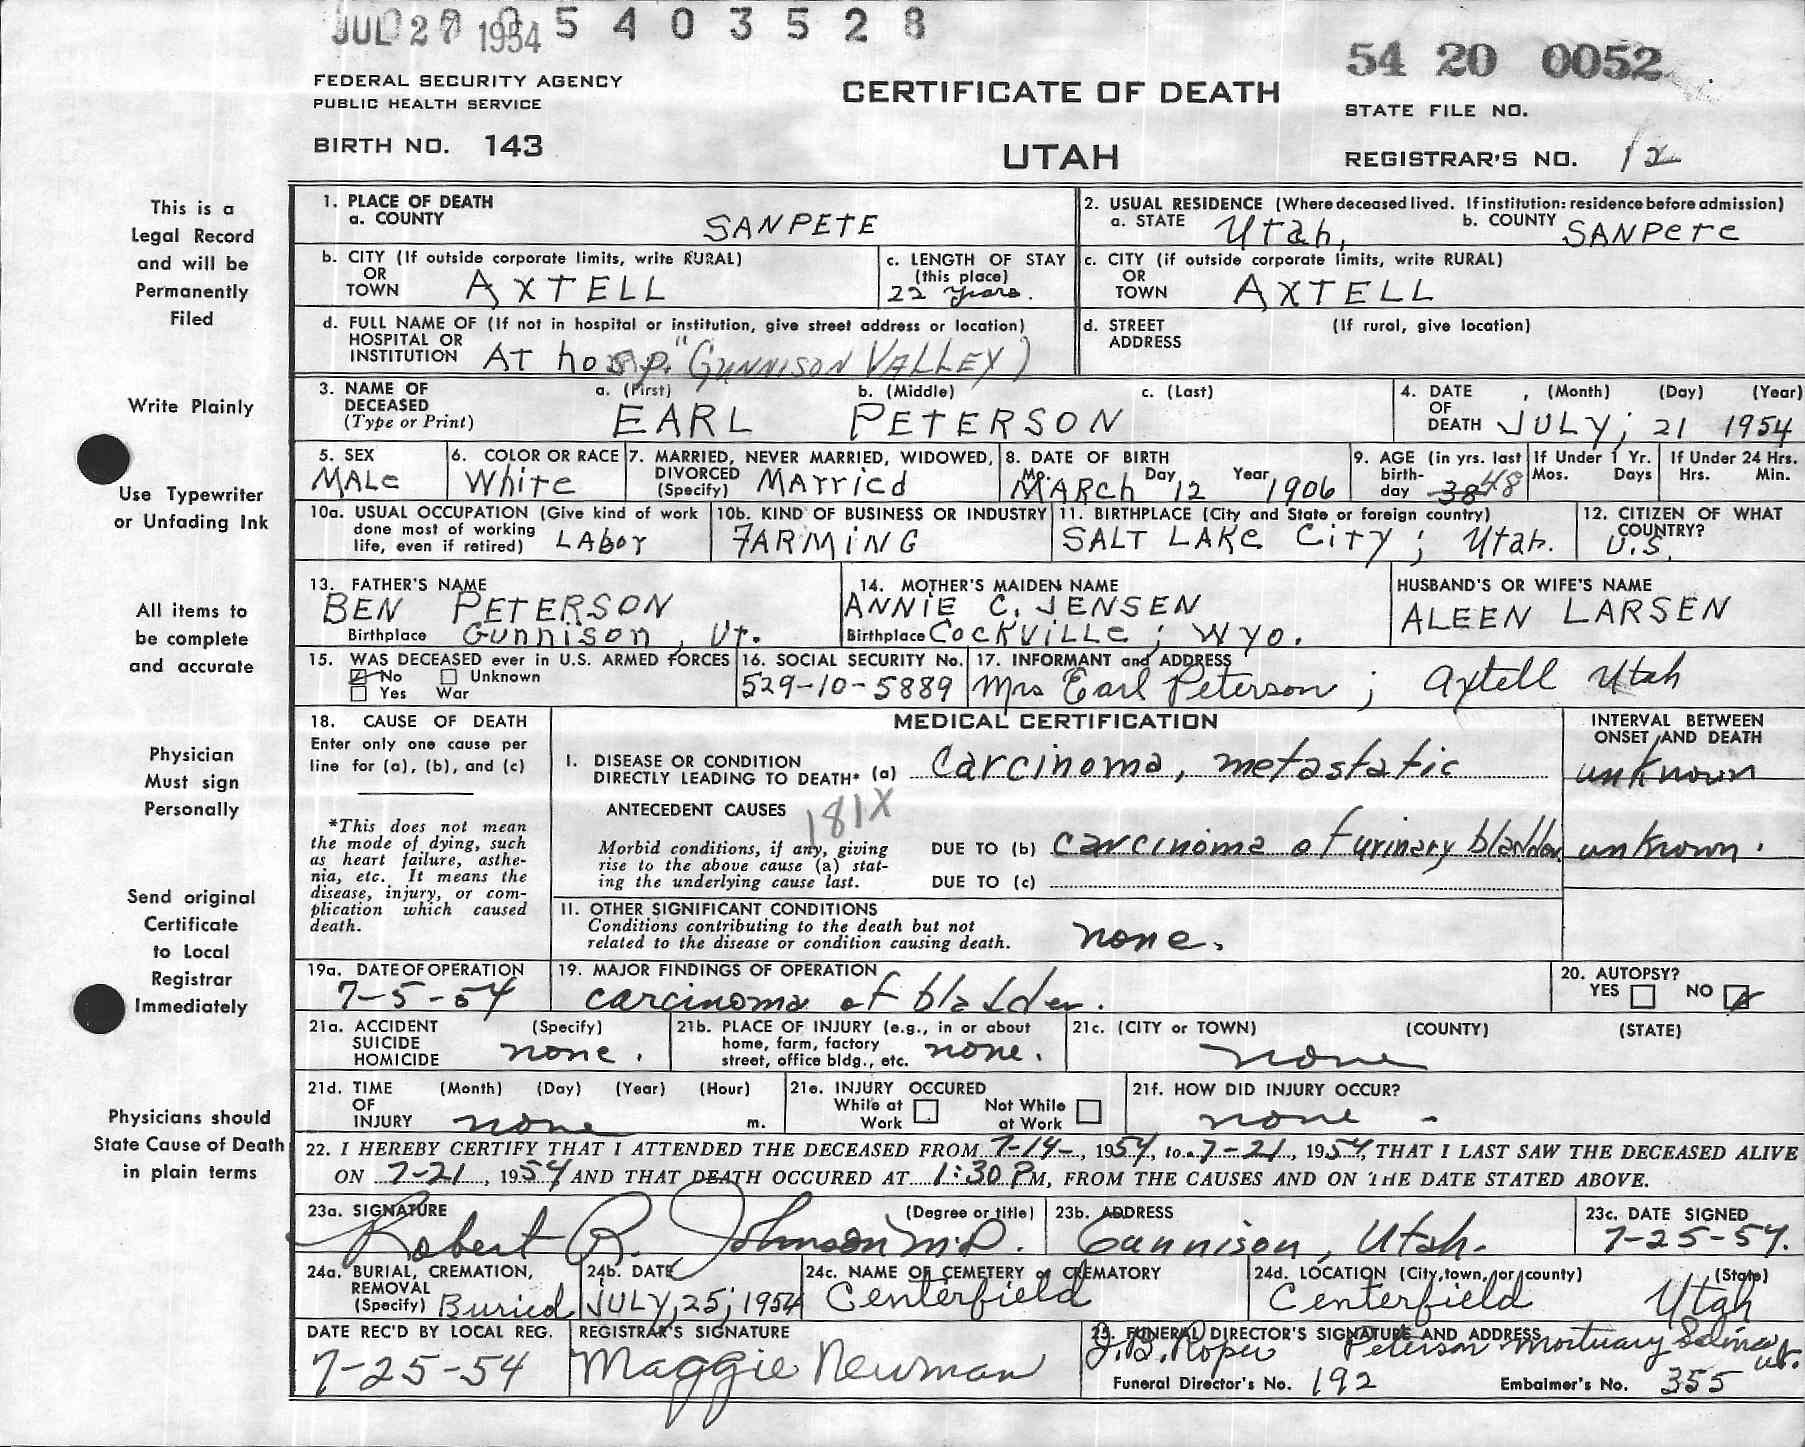 JUL 27 1954 5 4 0 3 5 2 8
54 20 0052
FEDERAL SECURITY AGENCY
PUBLIC HEALTH SERVICE
CERTIFICATE OF DEATH
STATE FILE NO.
BIRTH NO. 143
UTAH
REGISTRAR'S NO. 12
This is a
Legal Record
and will be
Permanently
Filed
Write Plainly
Use Typewriter
or Unfading Ink
All items to
be complete
and accurate
Physician
Must sign
Personally
Send original
Certificate
to Local
Registrar
Immediately
Physicians should
State Cause of Death
in plain terms
1. PLACE OF DEATH
a. COUNTY SANPETE
2. USUAL RESIDENCE (Where deceased lived. If institution: residence before admission)
a. STATE Utah, b. COUNTY SANPETE
b. CITY (If outside corporate limits, write RURAL)
OR
TOWN AXTELL
c. LENGTH OF STAY
(this place)
22 years.
c. CITY (if outside corporate limits, write RURAL)
OR
TOWN AXTELL
d. FULL NAME OF (If not in hospital or institution, give street address or location)
HOSPITAL OR
INSTITUTION At hosp. "GUNNISON VALLEY)
d. STREET (If rural, give location)
ADDRESS
3. NAME OF DECEASED
(Type or Print)
a. (First) b. (Middle) c. (Last)
EARL PETERSON
4. DATE OF DEATH (Month) (Day) (Year)
JULY; 21 1954
5. SEX
MALE
6. COLOR OR RACE
White
7. MARRIED, NEVER MARRIED, WIDOWED,
DIVORCED
(Specify) Married
8. DATE OF BIRTH
Mo. Day Year
MARCH 12 1906
9. AGE (in yrs. last
birth-
day 38 48
If Under 1 Yr.
Mos. Days
If Under 24 Hrs.
Hrs. Min.
10a. USUAL OCCUPATION (Give kind of work
done most of working
life, even if retired) LABOR
10b. KIND OF BUSINESS OR INDUSTRY
FARMING
11. BIRTHPLACE (City and State or foreign country)
SALT LAKE CITY; Utah.
12. CITIZEN OF WHAT
COUNTRY?
U.S.
13. FATHER'S NAME
BEN PETERSON
Birthplace Gunnison, Ut.
14. MOTHER'S MAIDEN NAME
ANNIE C. JENSEN
Birthplace COCKVILLE; WYO.
HUSBAND'S OR WIFE'S NAME
ALEEN LARSEN
15. WAS DECEASED ever in U.S. ARMED FORCES
No Unknown
Yes War
16. SOCIAL SECURITY No.
529-10-5889
17. INFORMANT and ADDRESS
Mrs Earl Peterson; Axtell Utah
18. CAUSE OF DEATH
Enter only one cause per
line for (a), (b), and (c)
*This does not mean
the mode of dying, such
as heart failure, asthe-
nia, etc. It means the
disease, injury, or com-
plication which caused
death.
MEDICAL CERTIFICATION
INTERVAL BETWEEN
ONSET AND DEATH
I. DISEASE OR CONDITION
DIRECTLY LEADING TO DEATH* (a) carcinoma, metastatic unknown
ANTECEDENT CAUSES 181X
Morbid conditions, if any, giving
rise to the above cause (a) stat-
ing the underlying cause last.
DUE TO (b) carcinoma of urinary bladder unknown.
DUE TO (c)
II. OTHER SIGNIFICANT CONDITIONS
Conditions contributing to the death but not
related to the disease or condition causing death. none.
19a. DATE OF OPERATION
7-5-54
19. MAJOR FINDINGS OF OPERATION
carcinoma of bladder.
20. AUTOPSY?
YES NO
21a. ACCIDENT (Specify)
SUICIDE
HOMICIDE none.
21b. PLACE OF INJURY (e.g., in or about
home, farm, factory
street, office bldg., etc. none.
21c. (CITY or TOWN) (COUNTY) (STATE)
none
21d. TIME (Month) (Day) (Year) (Hour)
OF
INJURY none m.
21e. INJURY OCCURED
While at Work Not While at Work
21f. HOW DID INJURY OCCUR?
none -
22. I HEREBY CERTIFY THAT I ATTENDED THE DECEASED FROM 7-14-, 1954, to 7-21, 1954, THAT I LAST SAW THE DECEASED ALIVE
ON 7-21, 1954 AND THAT DEATH OCCURED AT 1:30 PM, FROM THE CAUSES AND ON THE DATE STATED ABOVE.
23a. SIGNATURE (Degree or title)
Robert R. Johnson M.D.
23b. ADDRESS
Gunnison, Utah.
23c. DATE SIGNED
7-25-54.
24a. BURIAL, CREMATION,
REMOVAL
(Specify) Buried
24b. DATE
JULY, 25; 1954
24c. NAME OF CEMETERY or CREMATORY
Centerfield
24d. LOCATION (City, town, or county) (State)
Centerfield Utah
DATE REC'D BY LOCAL REG.
7-25-54
REGISTRAR'S SIGNATURE
Maggie Newman
25. FUNERAL DIRECTOR'S SIGNATURE AND ADDRESS
J.B. Roper Peterson Mortuary Salina Ut.
Funeral Director's No. 192 Embalmer's No. 355